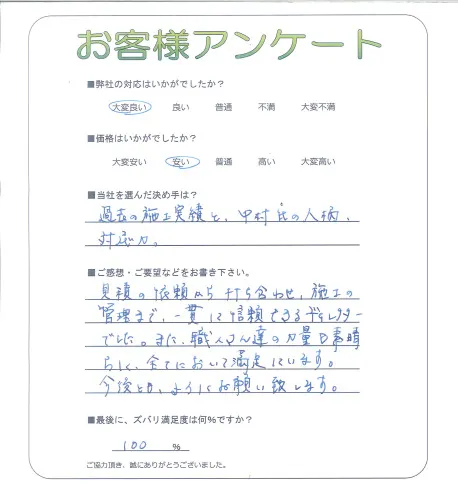 お客様アンケート
■弊社の対応はいかがでしたか？
大変良い 良い 普通 不満 大変不満
■価格はいかがでしたか？
大変安い 安い 普通 高い 大変高い
■当社を選んだ決め手は？
過去の施工実績と、中村氏の人柄、
対応力。
■ご感想・ご要望などをお書き下さい。
見積の依頼から打ち合わせ、施工の
管理まで、一貫して信頼できるディレクター
でした。また、職人さん達の力量も素晴
らしく、全てにおいて満足しています。
今後とも、よろしくお願い致します。
■最後に、ズバリ満足度は何%ですか？
100 %
ご協力頂き、誠にありがとうございました。